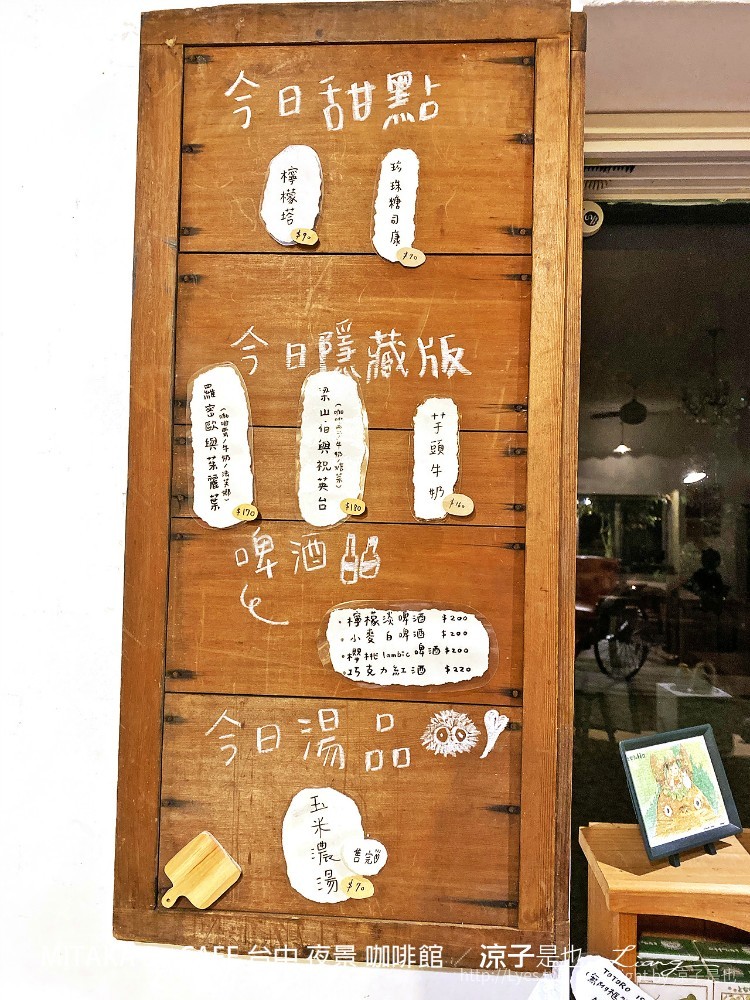 今日甜點
檸檬塔
$90
珍珠糖司康
$70
今日隱藏版
羅密歐與茱麗葉
$170
梁山伯與祝英台
$180
芋頭牛奶
$160
啤酒
·檸檬淡啤酒 $200
·小麥白啤酒 $200
·櫻桃lambic啤酒 $200
·巧克力紅酒 $220
今日湯品
玉米濃湯
售完
$70
CAFE 台中 夜景 咖啡館 / 涼子是也
TOTORO